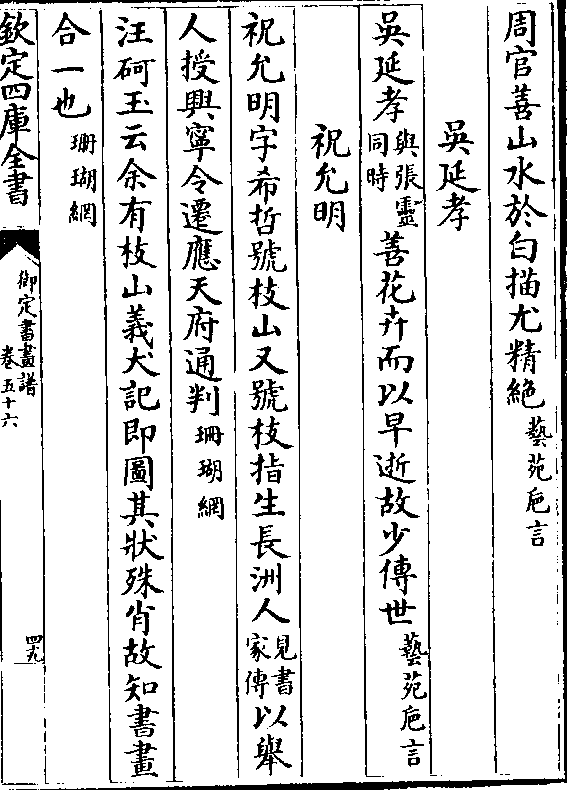 周官善山水於白描尤精絶藝苑巵言
吳延孝
吳延孝與張靈同時善花卉而以早逝故少傳世藝苑巵言
祝允明
祝允明字希哲號枝山又號枝指生長洲人見書家傳以舉
人授興寧令遷應天府通判珊瑚網
汪砢玉云余有枝山義犬記即圖其狀殊肖故知書畫
合一也珊瑚網
欽定四庫全書
御定書畫譜
卷五十六
四九